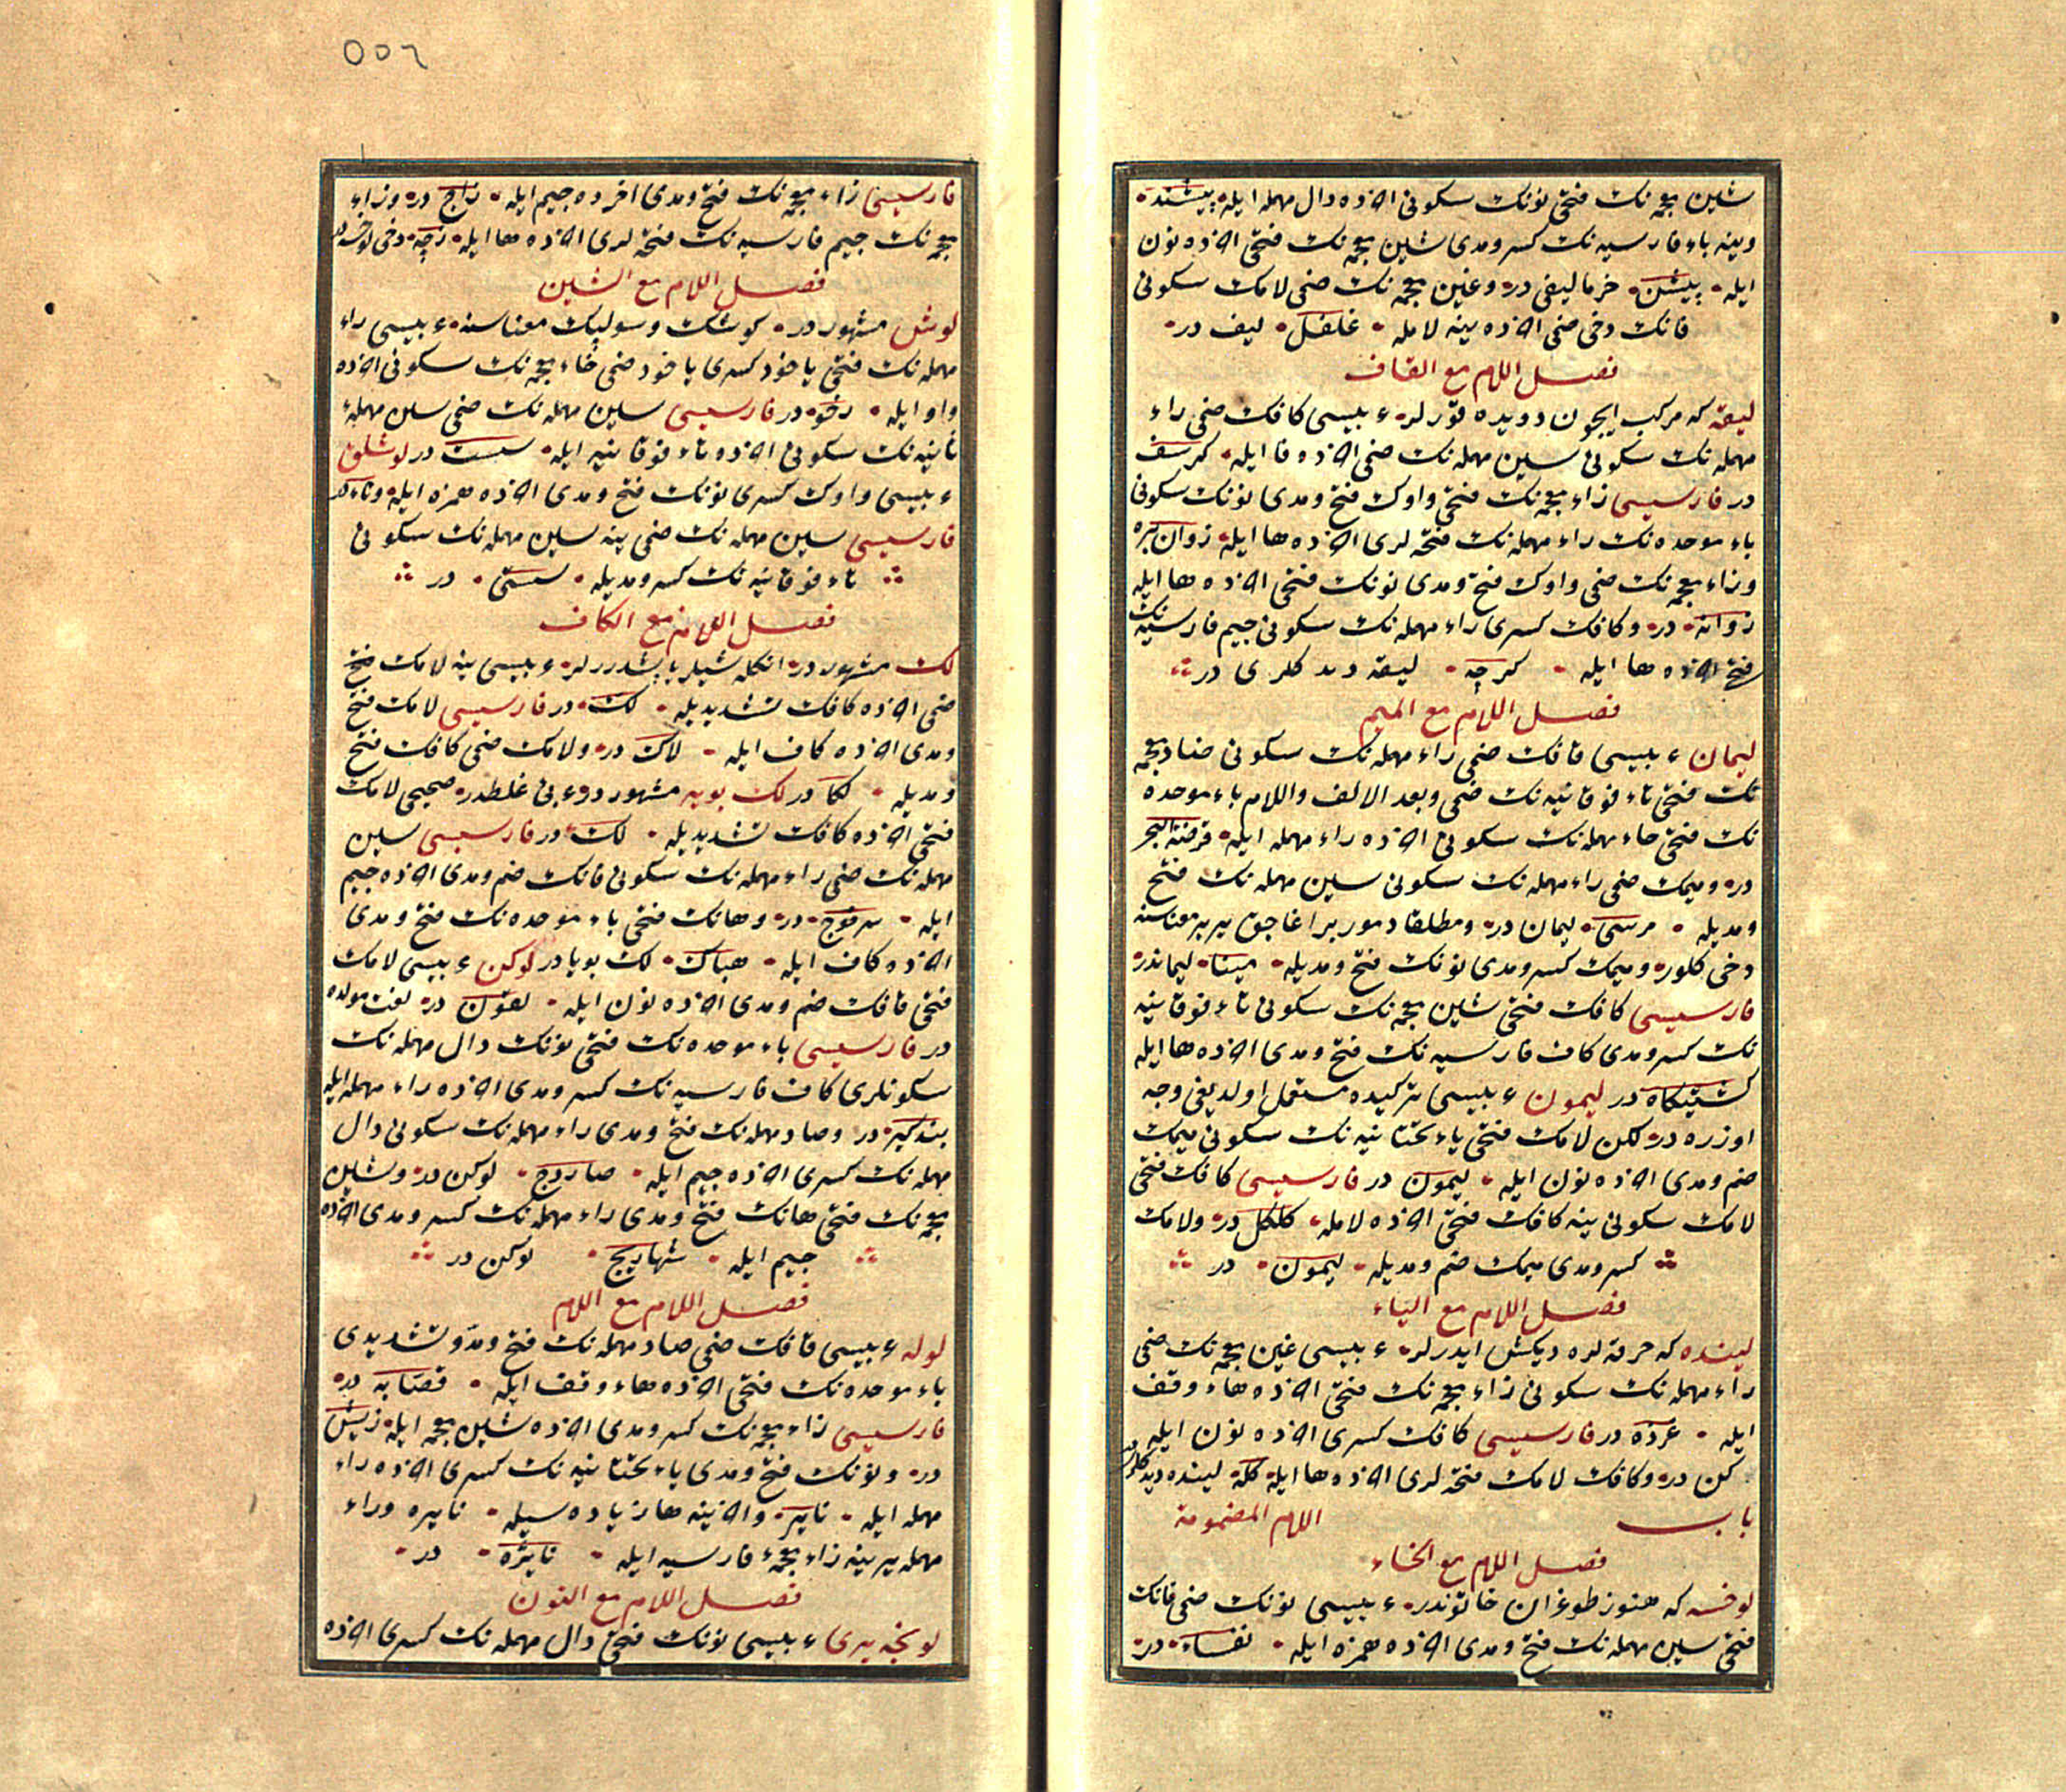 شین معجمه نك فتحی نونك سکونی اخرنده دال مهمله ایله بیشند
وینه باء فارسیه نك کسر ومدی شین معجمه نك فتحی اخرنده نون
ایله بیشن خرما لیفی در وغین معجمه نك ضمی لامك سکونی
فانك دخی ضمی اخرنده ینه لامله غلفل لیف در
فصل اللام مع القاف
لیقه که مرکب ایچون دویده قورلر عربیسی کافك ضمی راء
مهمله نك سکونی سین مهمله نك ضمی اخرنده فا ایله کرسف
در فارسیسی زاء معجمه نك فتحی واوك فتح ومدی نونك سکونی
باء موحده نك راء مهمله نك فتحه لری اخرنده ها ایله زوان بره
وزاء معجمه نك ضمی واوك فتح ومدی نونك فتحی اخرنده ها ایله
زوانه در وکافك کسری راء مهمله نك سکونی جیم فارسیه نك
فتحی اخرنده ها ایله کرچه لیقه دیدکلری در
فصل اللام مع المیم
لیمان عربیسی قافك ضمی راء مهمله نك سکونی ضاد معجمه
نك فتحی تاء فوقانیه نك ضمی وبعد الالف واللام باء موحده
نك فتحی حاء مهمله نك سکونی اخرنده راء مهمله ایله فرضة البحر
در ومیمك ضمی راء مهمله نك سکونی سین مهمله نك فتح
ومدیله مرسی لیمان در ومطلقا دمور براغاجق یر معناسنه
دخی کلور ومیمك کسر ومدی نونك فتح ومدیله مینا لیماندر
فارسیسی کافك فتحی شین معجمه نك سکونی تاء فوقانیه
نك کسر ومدی کاف فارسیه نك فتح ومدی اخرنده ها ایله
کشتیکاه در لیمون عربیسی ترکیده مستعمل اولدیغی وجه
اوزره در لکن لامك فتحی یاء تحتانیه نك سکونی میمك
ضم ومدی اخرنده نون ایله لیمون در فارسیسی کافك فتحی
لامك سکونی ینه کافك فتحی اخرنده لامله کلکل در ولامك
کسر ومدی میمك ضم ومدیله لیمون در
فصل اللام مع الیاء
لینده که حرفتلره دیکش ایدرلر عربیسی غین معجمه نك ضمی
راء مهمله نك سکونی زاء معجمه نك فتحی اخرنده هاء وقف
ایله غرزه در فارسیسی کافك کسری اخرنده نون ایله
کن در وکافك لامك فتحه لری اخرنده ها ایله کله لینده دیدکلری
باب اللام المضمومة
فصل اللام مع الخاء
لوخسه که هنوز طوغران خاتوندر عربیسی نونك ضمی فانك
فتحی سین مهمله نك فتح ومدی اخرنده همزه ایله نفساء در
فارسیسی زاء معجمه نك فتح ومدی اخرده جیم ایله زاج در وزاء
معجمه نك جیم فارسیه نك فتحه لری اخرنده ها ایله زچه دخی لوخسه در
فصل اللام مع الشین
لوش مشهور در کوشك وسولپك معناسنه عربیسی راء
مهمله نك فتحی یاخود کسری یاخود ضمی خاء معجمه نك سکونی اخرنده
واو ایله رخو در فارسیسی سین مهمله نك ضمی سین مهملهء
ثانیه نك سکونی اخرنده تاء فوقانیه ایله سست در لوشلق
عربیسی واوك کسری نونك فتح ومدی اخرنده همزه ایله وناء در
فارسیسی سین مهمله نك ضمی ینه سین مهمله نك سکونی
تاء فوقانیه نك کسر ومدیله سستی در
فصل اللام مع الکاف
لك مشهور در انکله شیلر یاپشدررلر عربیسی ینه لامك فتح
ضمی اخرنده کافك تشدیدیله لك در فارسیسی لامك فتح
ومدی اخرنده کاف ایله لاك در ولامك ضمی کافك فتح
ومدیله لکا در لك بویه مشهور دوه بنی غلطدر صحیحی لامك
فتحی اخرنده کافك تشدیدیله لك در فارسیسی سین
مهمله نك ضمی راء مهمله نك سکونی فانك ضم ومدی اخرنده جیم
ایله سرفوج در وهانك فتحی باء موحده نك فتح ومدی
اخرنده کاف ایله هباك لك بویا در لوکن عربیسی لامك
فتحی قافك ضم ومدی اخرنده نون ایله لقون در لغت مولده
در فارسیسی باء موحده نك فتحی نونك دال مهمله نك
سکونلری کاف فارسیه نك کسر ومدی اخرنده راء مهمله ایله
بندکیر در وصاد مهمله نك فتح ومدی راء مهمله نك سکونی دال
مهمله نك کسری اخرنده جیم ایله صاردج لوکن در وشین
معجمه نك فتحی هانك فتح ومدی راء مهمله نك کسر ومدی اخرنده
جیم ایله شهاریج لوکن در
فصل اللام مع اللام
لوله عربیسی قافك ضمی صاد مهمله نك فتح ومد وتشدیدی
باء موحده نك فتحی اخرنده هاء وقف ایله قصابه در
فارسیسی زاء معجمه نك کسر ومدی اخرنده شین معجمه ایله زیش
در ونونك فتح ومدی یاء تحتانیه نك کسری اخرنده راء
مهمله ایله نایر واخرینه ها زیاده سیله نایره وراء
مهمله یرینه زاء معجمهء فارسیه ایله نایژه در
فصل اللام مع النون
لونجه یری عربیسی نونك فتحی دال مهمله نك کسری اخرنده